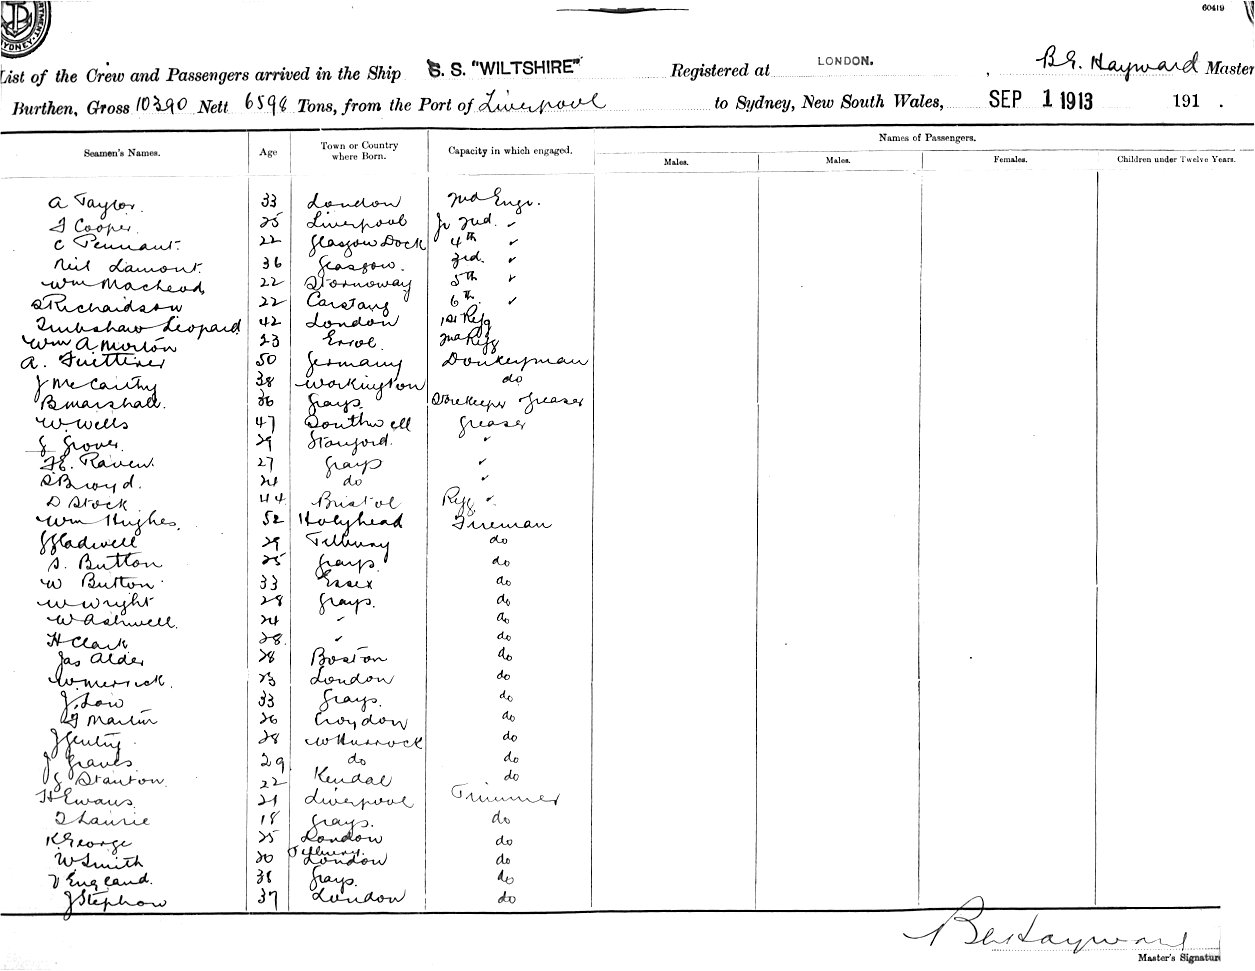 60419
SYDNEY
List of the Crew and Passengers arrived in the Ship S. S. "WILTSHIRE" Registered at LONDON. , B.G. Hayward Master
Burthen, Gross 10390 Nett 6598 Tons, from the Port of Liverpool to Sydney, New South Wales, SEP 1 1913 191 .
Names of Passengers.
Seamen's Names. Age Town or Country where Born. Capacity in which engaged. Males. Males. Females. Children under Twelve Years.
A Taylor. 33 London 2nd Engr.
Cooper. 25 Liverpool Jr 2nd. "
C Pennant. 22 Glasgow Dock 4th "
Neil Lamont. 36 Glasgow. 3rd. "
Wm Macleod 22 Stornoway 5th "
Richardson 22 Carstang 6th. "
Leopard 42 London 1st Refg
Wm A Morton 23 Errol. 2nd Refg
A. 50 Germany Donkeyman
J McCarthy 38 Workington do
B Marshall. 36 Grays. Storekeeper Greaser
W. Wells 47 Southwell Greaser
G Grover. 29 Stanford. "
Raven. 27 Grays "
do "
D Stock 44 Bristol Refg "
Wm Hughes. 52 Holyhead Fireman
Gladwell 29 Tilbury do
S. Button 25 Grays. do
W Button 33 Essex do
W Wright 28 Grays. do
W Ashwell. 24 " do
H Clark 28. " do
Jas Alder 28 Boston do
W. Merrick. 23 London do
J. Low 33 Grays. do
Martin 26 Croydon do
J Gentry 28 W Thurrock do
J Graves 29 do do
G Stanton. 22 Kendal do
H Evans 21 Liverpool Trimmer
Laurie 18 Grays. do
K George 25 London do
W Smith 20 Tilbury. London do
England. 38 Grays. do
J Stephow 37 London do
B G Hayward
Master's Signature